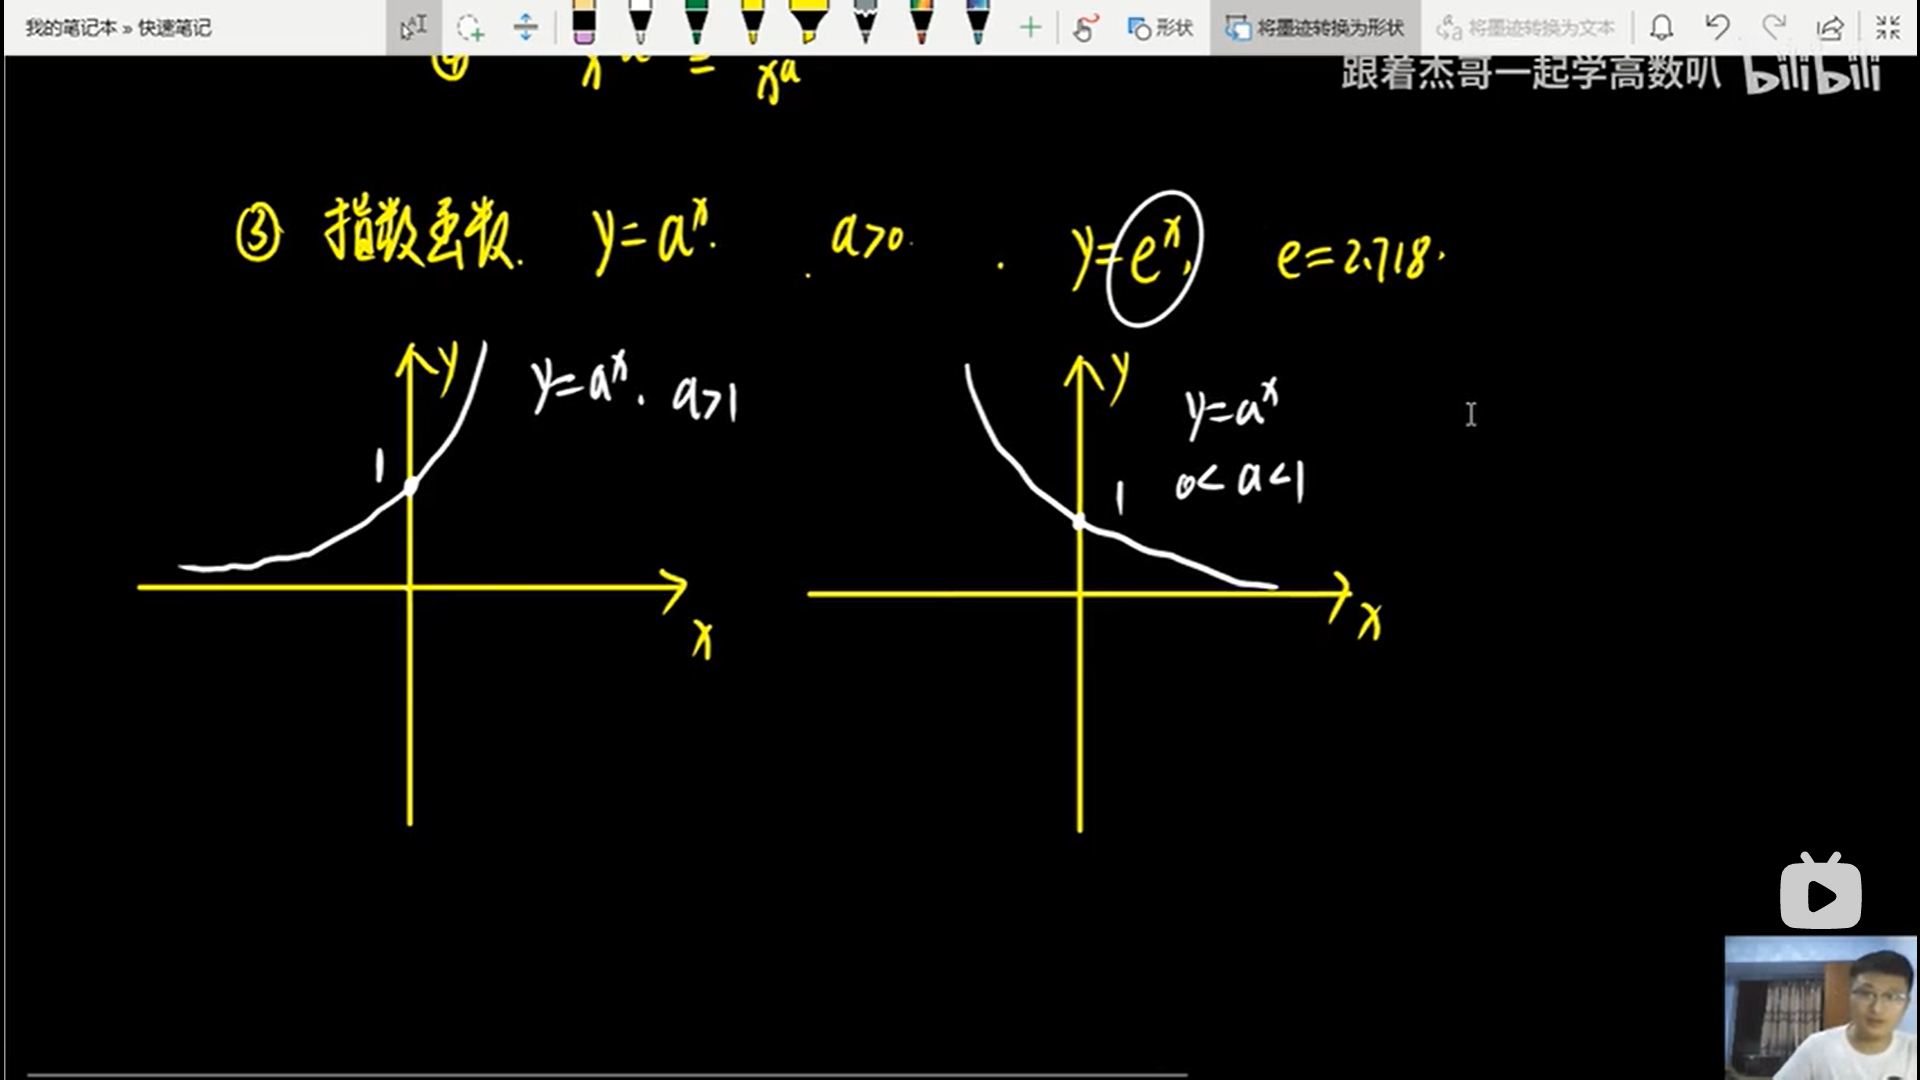 我的笔记本 » 快速笔记
形状 将墨迹转换为形状 将墨迹转换为文本
跟着杰哥一起学高数叭 bilibili
④ x = xᵃ
③ 指数函数. y=aˣ. a>0. y=eˣ, e=2.718.
y y=aˣ. a>1
1
x
y y=aˣ
0<a<1
1
x